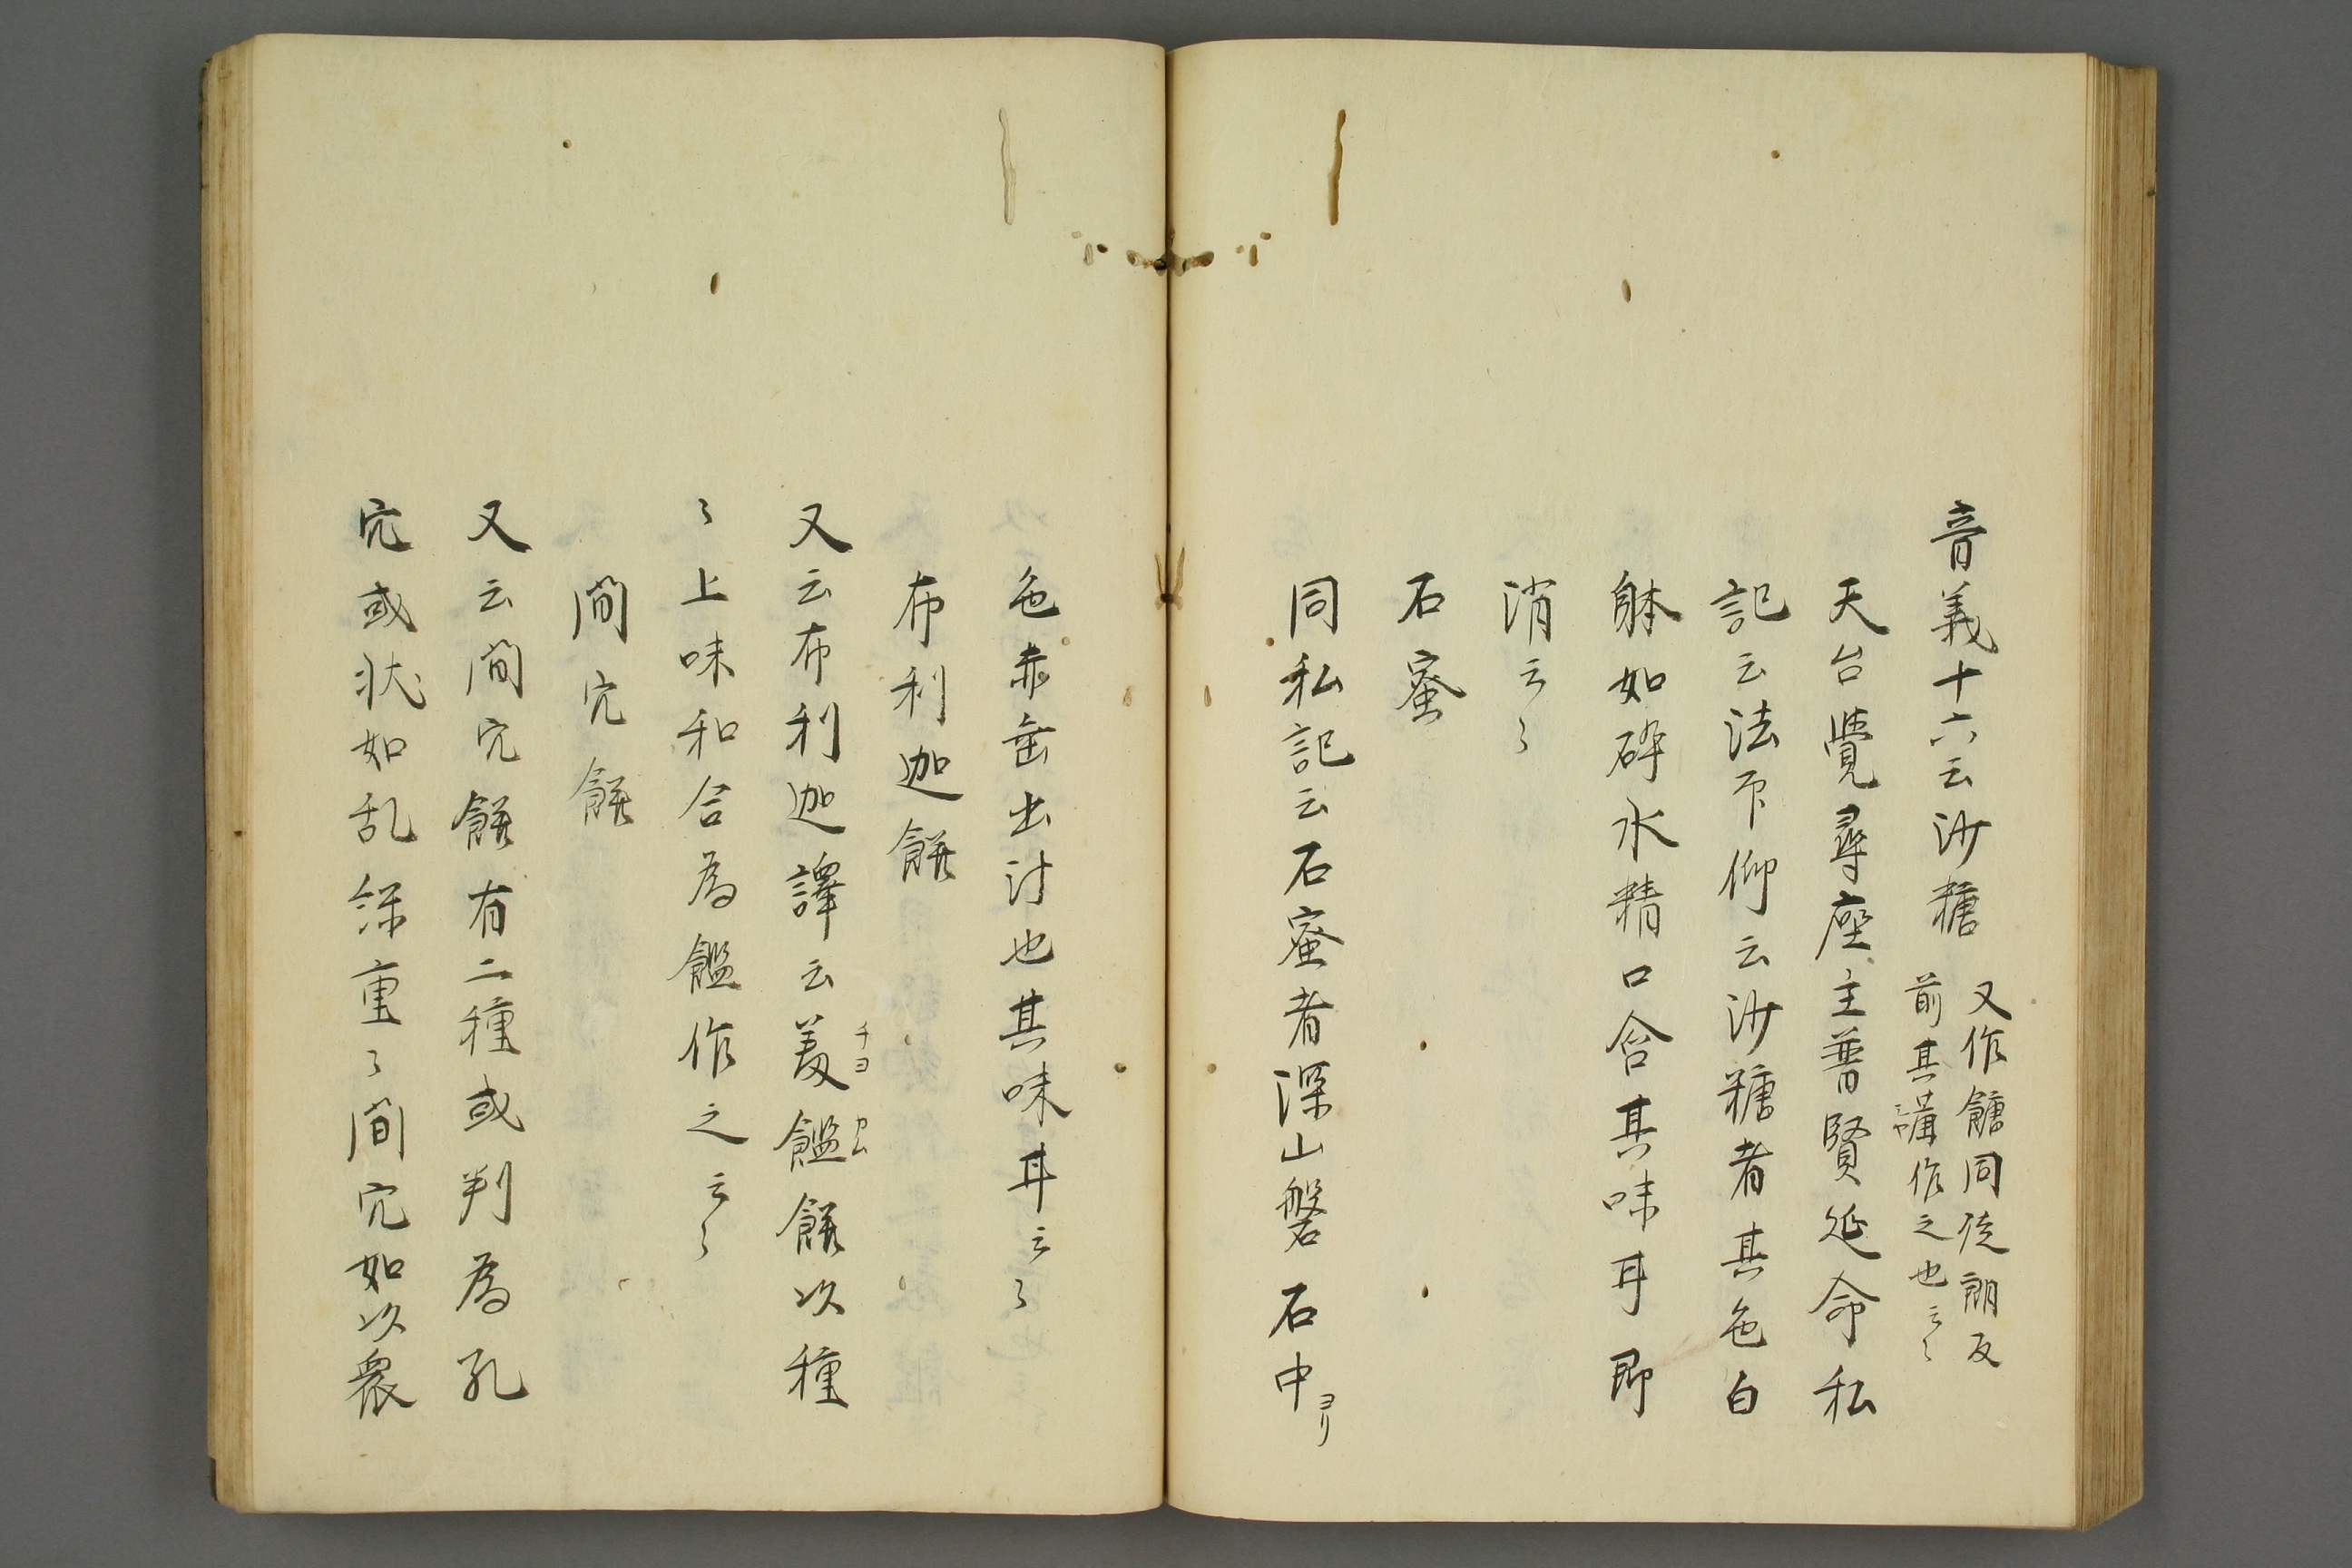 音義十六云沙糖 又作餹同徒朗反
前其講作之也云〻
天台覺尋座主普賢延命私
記云法印仰云沙糖者其色白
躰如碎水精口含其味甘即
消云〻
石蜜
同私記云石蜜者深山磐石中ヨリ
色赤出汁也其味甘云〻
布利迦餅
又云布利迦譯云餅以種
〻上味和合為作之云〻
間穴餅
又云間穴餅有二種或判為孔
穴或状如乱重〻間穴如以衆